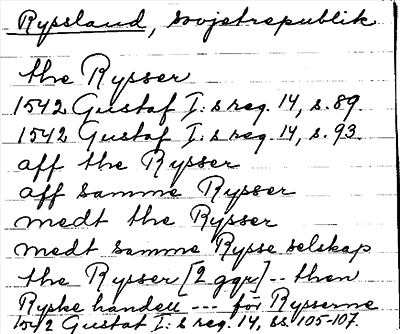 Ryssland, Sovjetrepublik
the Rysser
1542 Gustaf I:s reg. 14, s. 89.
1542 Gustaf I:s reg. 14, s. 93.
aff the Rysser
aff samme Rysser
medt the Rysser
medt samme Rysse selskap
the Rysser [2 ggr] -- then
Ryske handell --- för Rysserne
1542 Gustaf I:s reg. 14, ss 105-107.